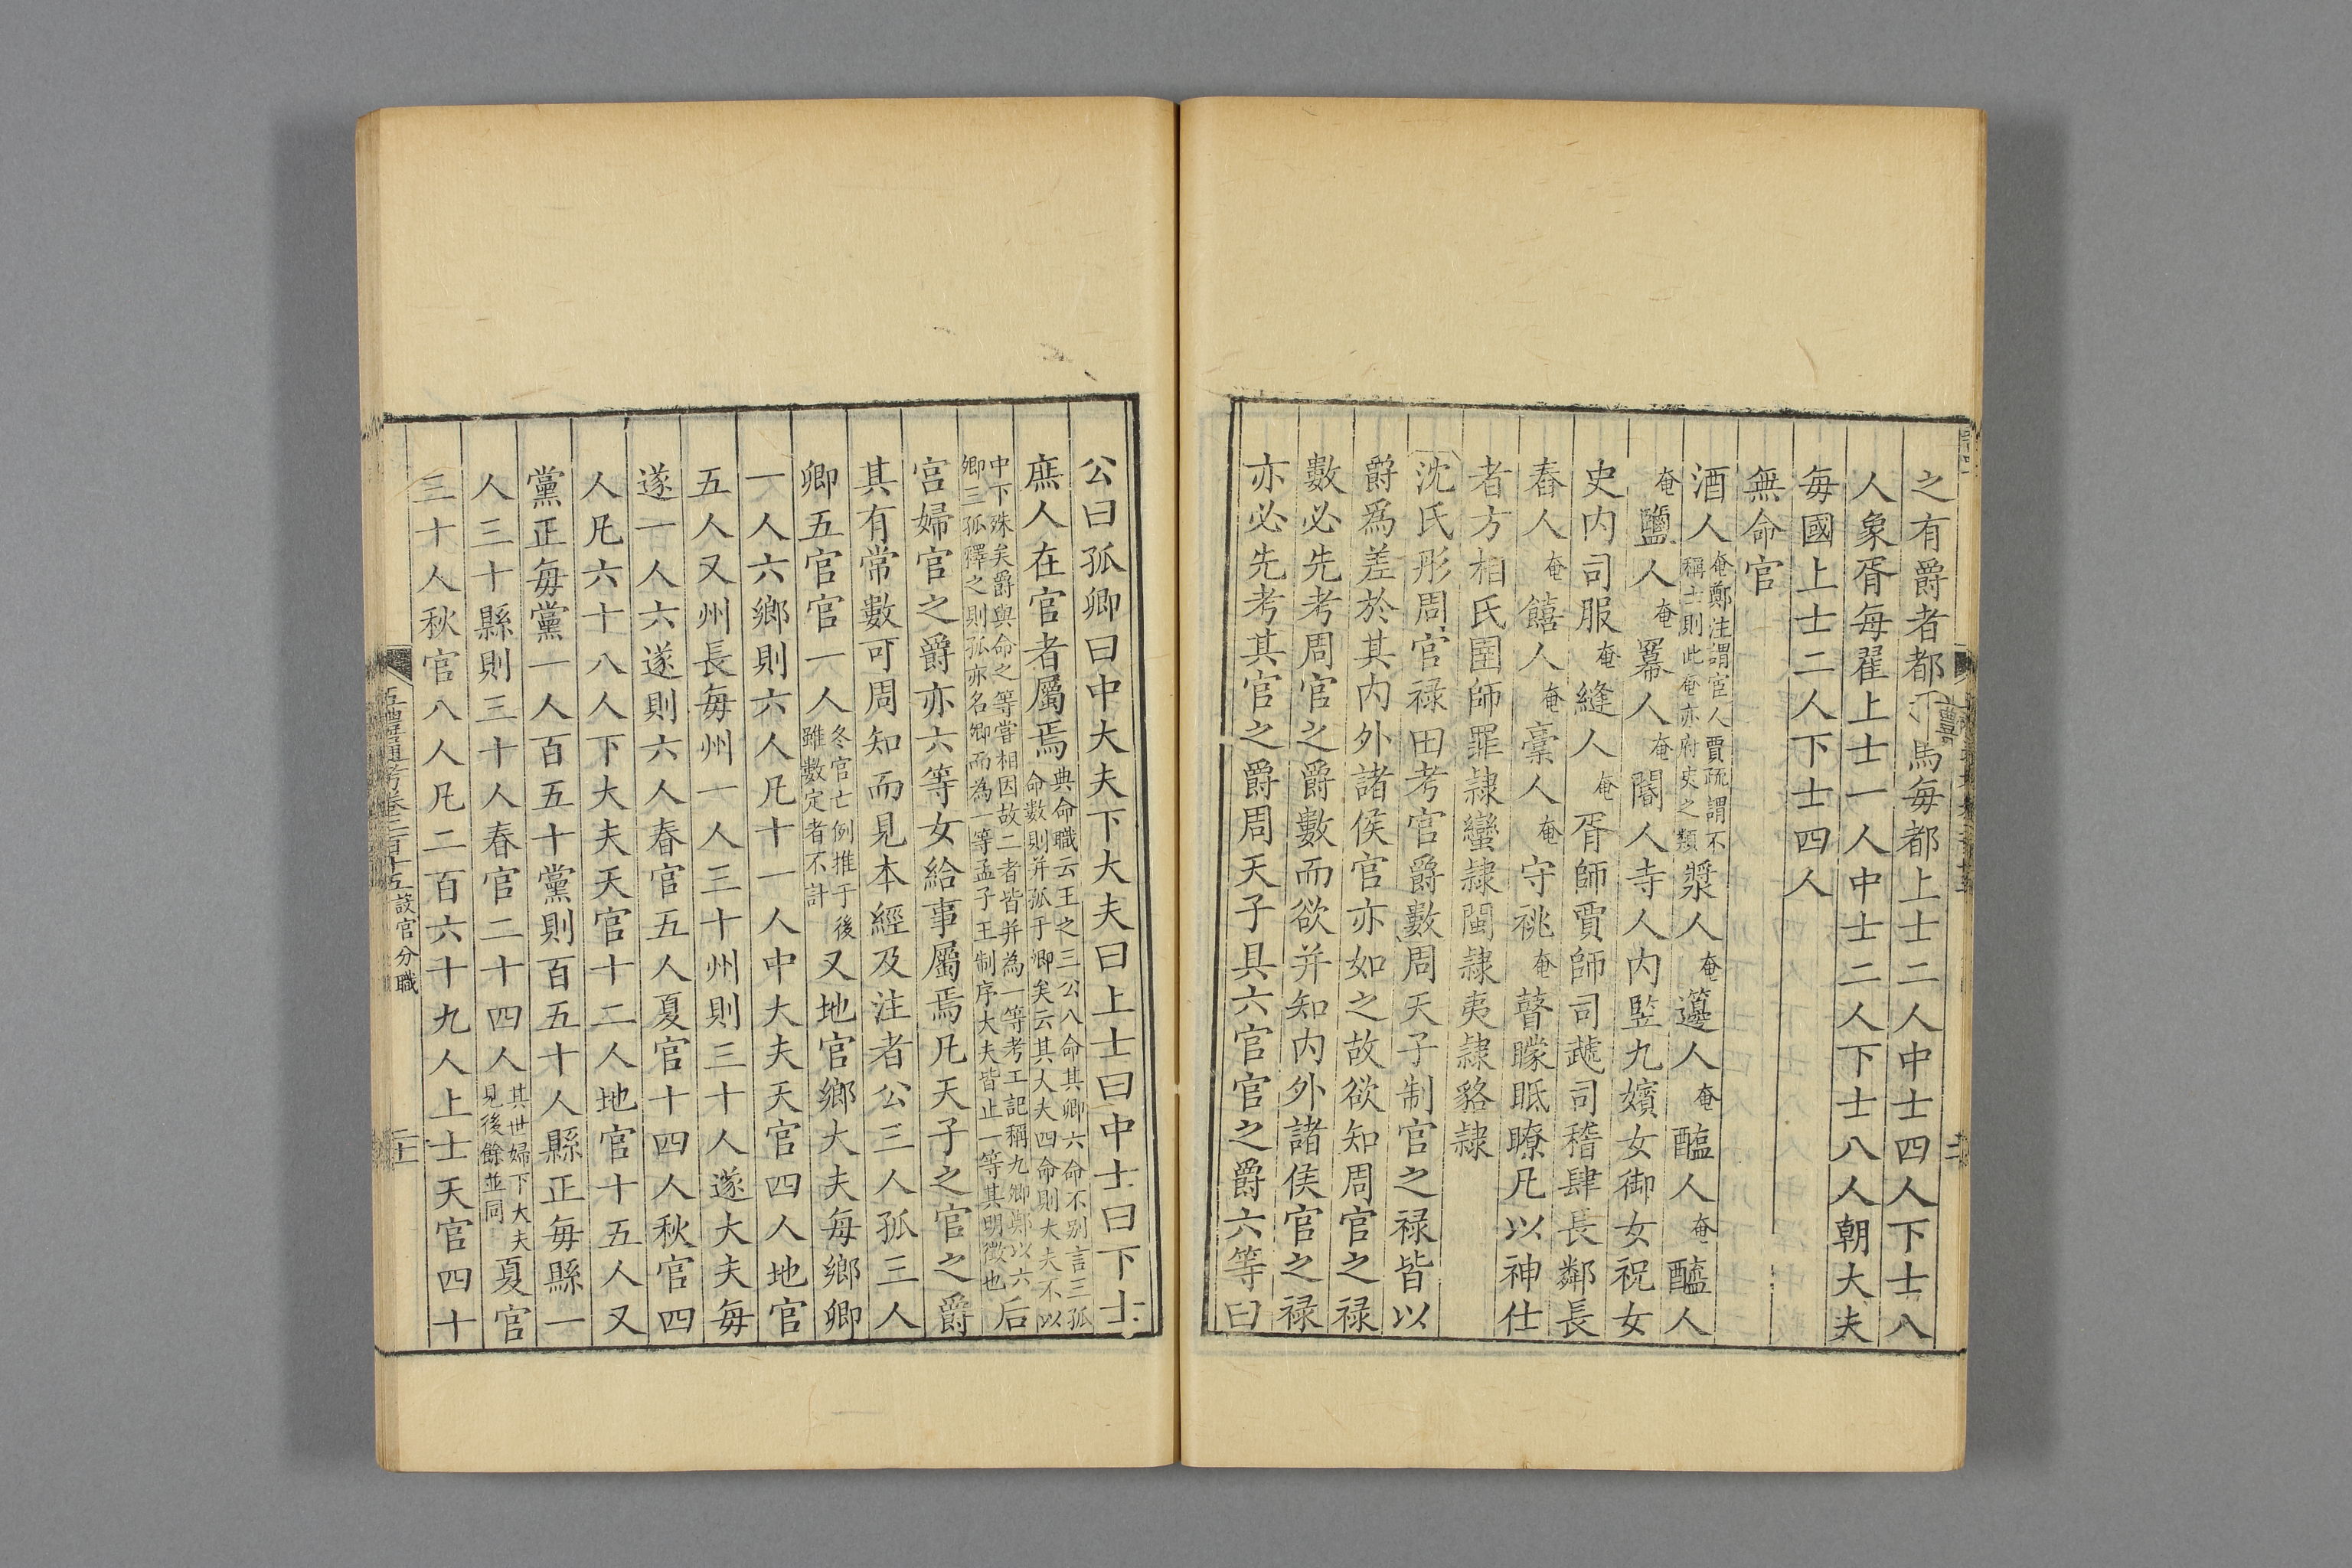 之有爵者都司馬每都上士二人中士四人下士八
人象胥每翟上士一人中士二人下士八人朝大夫
每國上士二人下士四人
無命官
酒人奄鄭注謂宦人賈疏謂不稱士則此奄亦府史之類漿人奄籩人奄醢人奄醯人
奄鹽人奄冪人奄閽人寺人內竪九嬪女御女祝女
史內司服奄縫人奄胥師賈師司虣司稽肆長鄰長
舂人奄饎人奄稾人奄守祧奄瞽矇眡瞭凡以神仕
者方相氏圉師罪隷蠻隷閩隷夷隷貉隷
沈氏彤周官禄田考官爵數周天子制官之禄皆以
爵爲差於其內外諸侯官亦如之故欲知周官之禄
數必先考周官之爵數而欲并知內外諸侯官之禄
亦必先考其官之爵周天子具六官官之爵六等曰
公曰孤卿曰中大夫下大夫曰上士曰中士曰下士
庶人在官者屬焉典命職云王之三公八命其卿六命不别言三孤命數則并孤于卿矣云其大夫四命則大夫不以
中下殊矣爵與命之等當相因故二者皆并為一等考工記稱九卿鄭以六卿三孤釋之則孤亦名卿而為一等孟子王制序大夫皆止一等其明徵也后
宮婦官之爵亦六等女給事屬焉凡天子之官之爵
其有常數可周知而見本經及注者公三人孤三人
卿五官官一人冬官亡例推于後雖數定者不計又地官鄉大夫每鄉卿
一人六鄉則六人凡十一人中大夫天官四人地官
五人又州長每州一人三十州則三十人遂大夫每
遂一人六遂則六人春官五人夏官十四人秋官四
人凡六十八人下大夫天官十二人地官十五人又
黨正每黨一人百五十黨則百五十人縣正每縣一
人三十縣則三十人春官二十四人其世婦下大夫見後餘並同夏官
三十人秋官八人凡二百六十九人上士天官四十
五禮通考卷二百十五設官分職